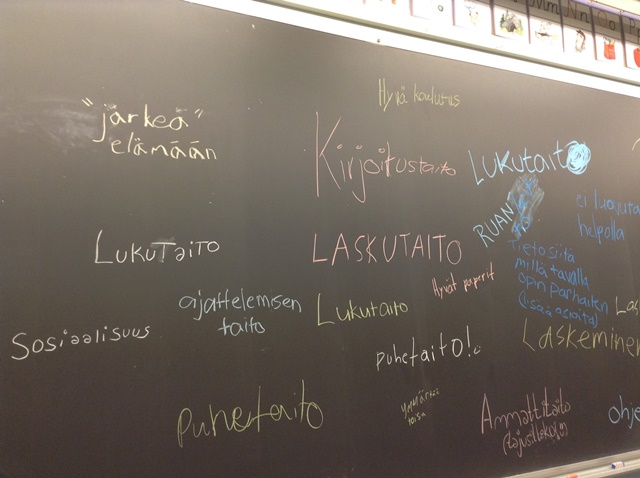 Hyvä koulutus
"järkeä"
elämään
Kirjoitustaito
LUKUTAITO
RUAN
ei luovuta
helpolla
LUKUTAITO
LASKUTAITO
Tieto siitä
millä tavalla
opin parhaiten
(lisää asioita)
Hyvät paperit
ajattelemisen
taito
Lukutaito
Las
Sosiaalisuus
puhetaito!
LASKEMINEN
puhetaito
Ammattitaito
ohje